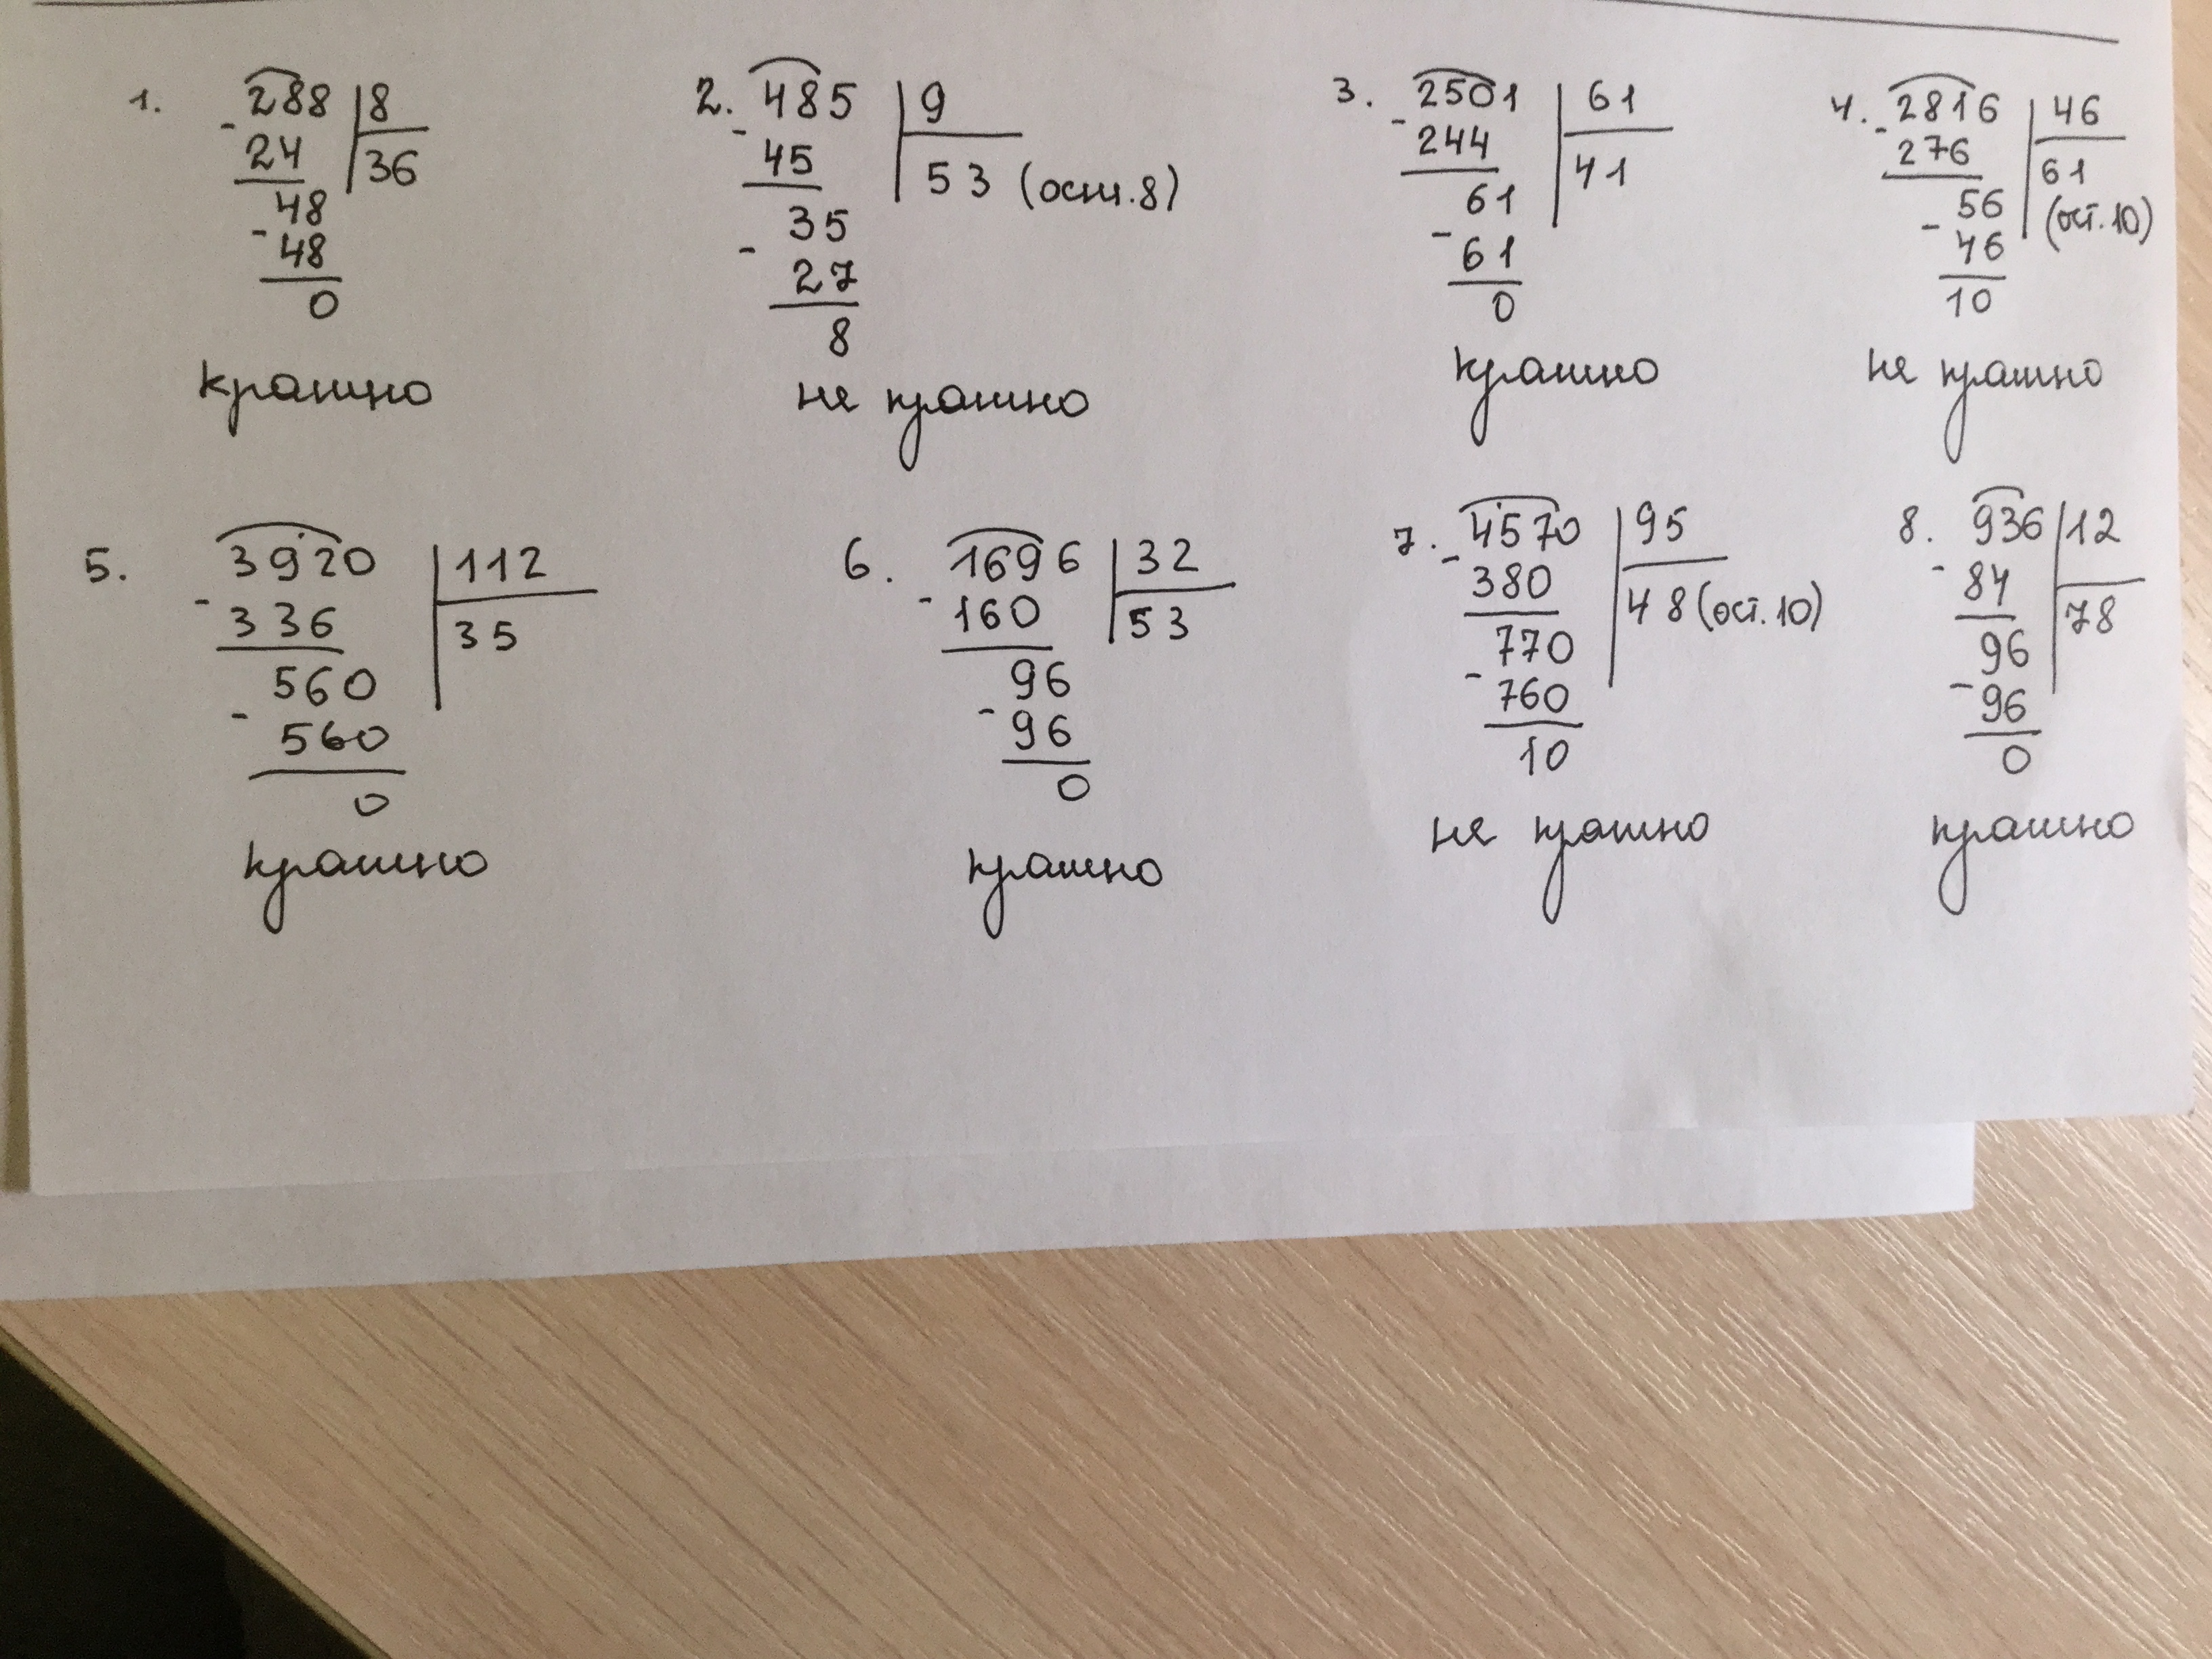 1. 288 | 8
- 24 | 36
48
- 48
0
кратно
2. 485 | 9
- 45 | 53 (ост. 8)
35
- 27
8
не кратно
3. 2501 | 61
- 244 | 41
61
- 61
0
кратно
4. 2816 | 46
- 276 | 61
56 (ост. 10)
- 46
10
не кратно
5. 3920 | 112
- 336 | 35
560
- 560
0
кратно
6. 1696 | 32
- 160 | 53
96
- 96
0
кратно
7. 4570 | 95
- 380 | 48 (ост. 10)
770
- 760
10
не кратно
8. 936 | 12
- 84 | 78
96
- 96
0
кратно